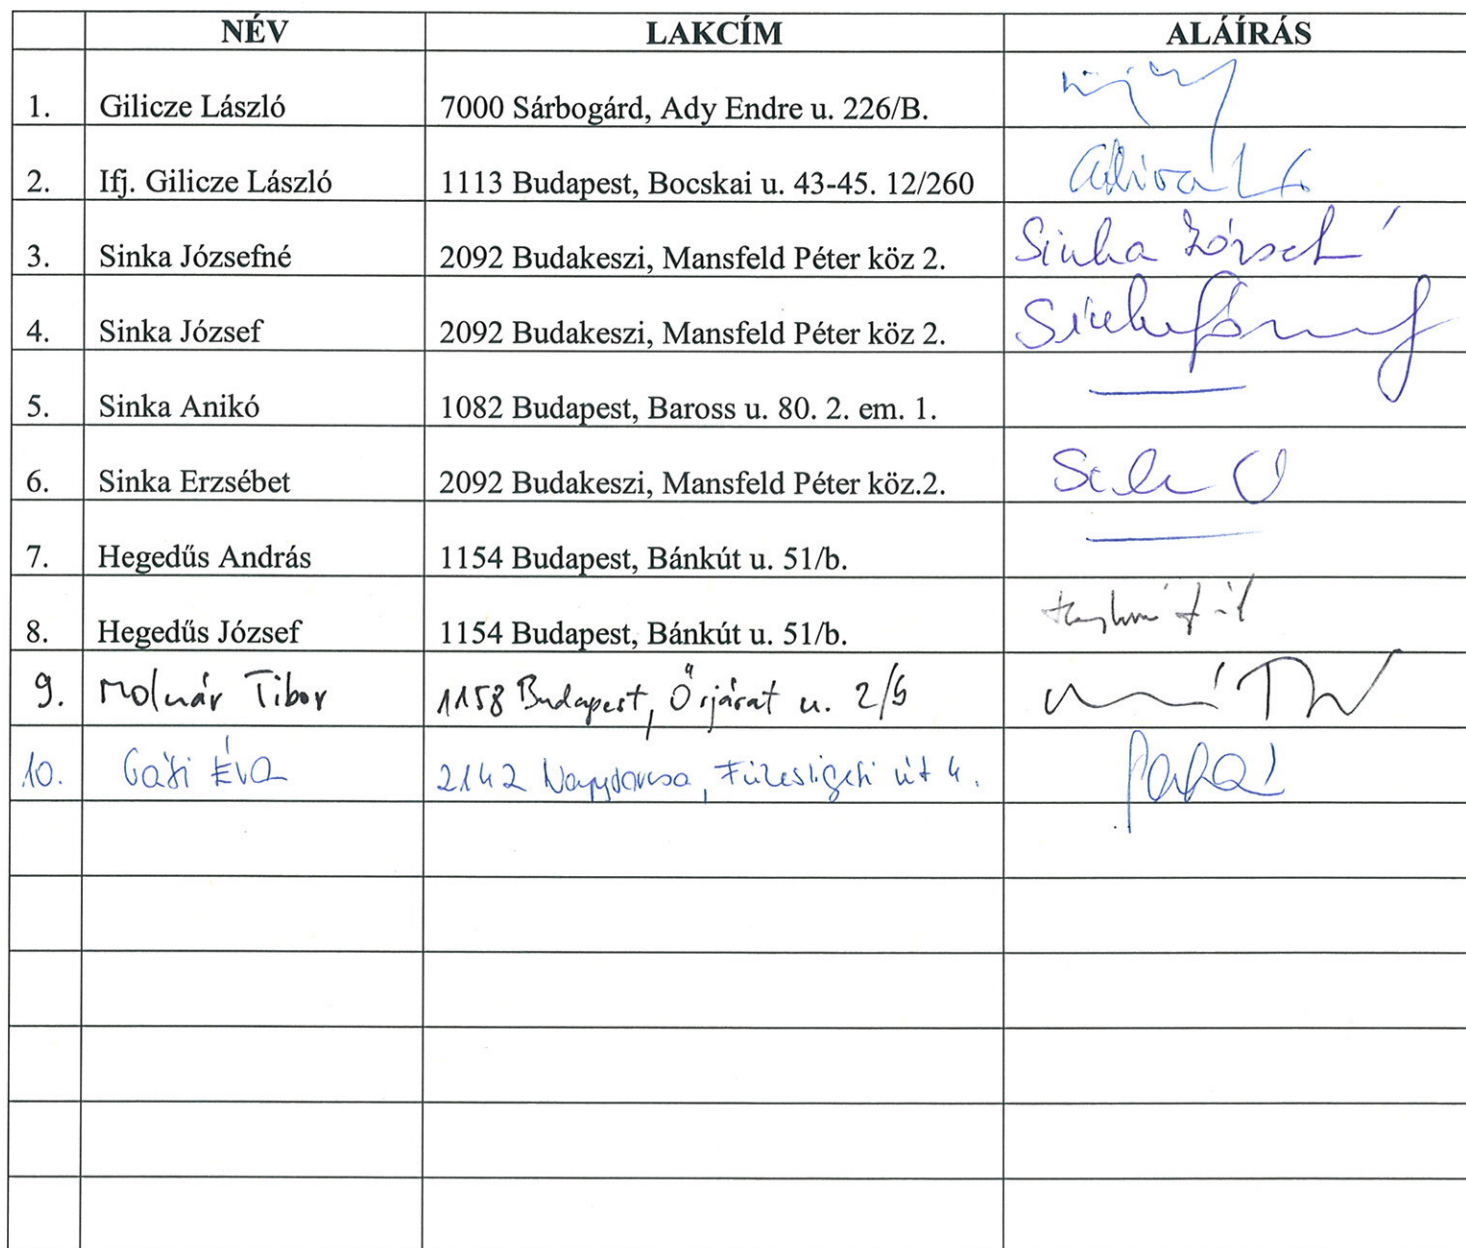 NÉV LAKCÍM ALÁÍRÁS
1. Gilicze László 7000 Sárbogárd, Ady Endre u. 226/B.
2. Ifj. Gilicze László 1113 Budapest, Bocskai u. 43-45. 12/260
3. Sinka Józsefné 2092 Budakeszi, Mansfeld Péter köz 2. Sinka
4. Sinka József 2092 Budakeszi, Mansfeld Péter köz 2.
5. Sinka Anikó 1082 Budapest, Baross u. 80. 2. em. 1.
6. Sinka Erzsébet 2092 Budakeszi, Mansfeld Péter köz.2.
7. Hegedűs András 1154 Budapest, Bánkút u. 51/b.
8. Hegedűs József 1154 Budapest, Bánkút u. 51/b.
9. Molnár Tibor 1158 Budapest, Őrjárat u.
10. Éva 2142 Nagytarcsa, Füzesligeti út 4.